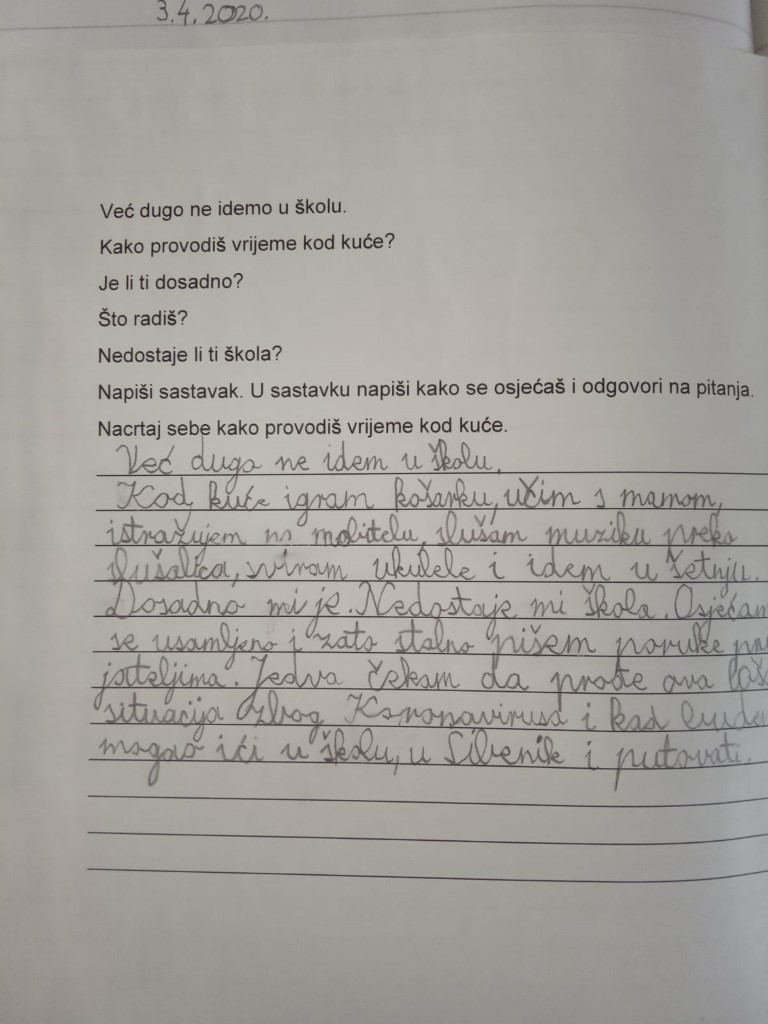 3.4.2020.
Već dugo ne idemo u školu.
Kako provodiš vrijeme kod kuće?
Je li ti dosadno?
Što radiš?
Nedostaje li ti škola?
Napiši sastavak. U sastavku napiši kako se osjećaš i odgovori na pitanja.
Nacrtaj sebe kako provodiš vrijeme kod kuće.
Već dugo ne idem u školu.
Kod kuće igram košarku, učim s mamom,
istražujem na mobitelu, slušam muziku preko
slušalica, sviram ukulele i idem u šetnju.
Dosadno mi je. Nedostaje mi škola. Osjećam
se usamljeno i zato stalno pišem poruke pri
jateljima. Jedva čekam da prođe ova loša
situacija zbog Koronavirusa i kad budem
mogao ići u školu, u Šibenik i putovati.